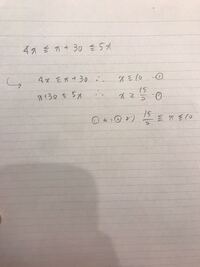 4x ≦ x + 30 ≦ 5x
4x ≦ x + 30 ∴ x ≦ 10 ①
x + 30 ≦ 5x ∴ x ≧ 15/2 ②
①と②より 15/2 ≦ x ≦ 10